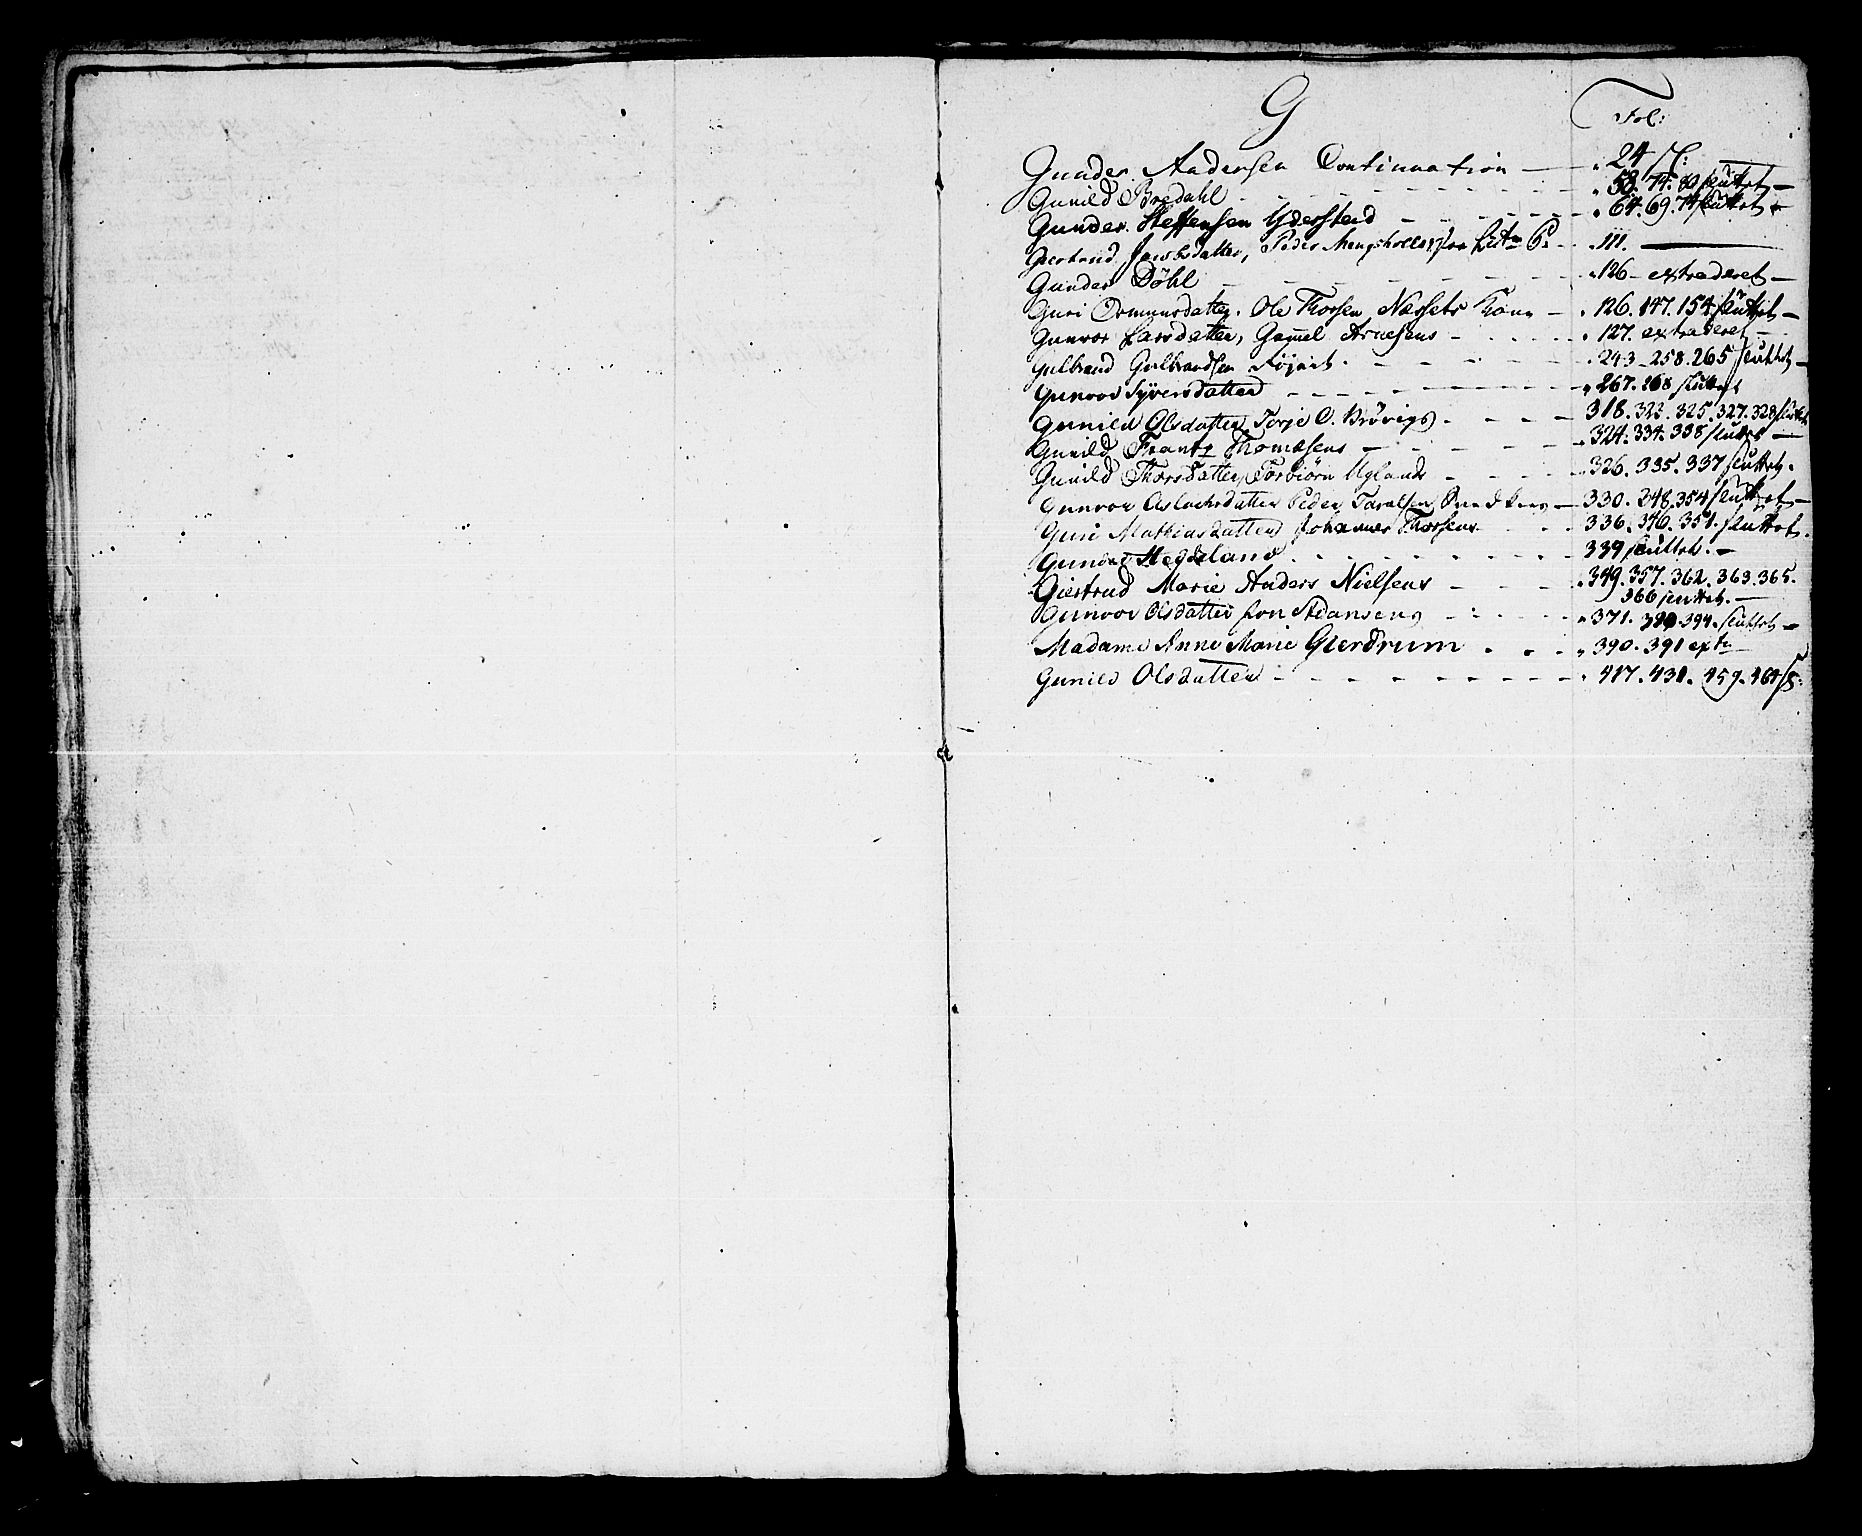 G
Fol:
Gunder Andersen Continuation — 24 sl:
Gunild Bredahl - - - 58. 74. 80 sluttet —
Gunder Steffensen Ydersteid - - - 64. 69. 74 sluttet
Giertrud Jacobsdatter, Peder Mengshoel — 111. —
Gunder Döhl - - - 126 — extraderet —
Guri Ormunsdatter. Ole Thorsen Næssets Kone — 126. 147. 154 sluttet —
Gunvor Larsdatter, Gamel Arnesens - - - 127. extraderet —
Gulbrand Gulbrandsen - - - 243 - 258. 265 sluttet —
Gunvor Syversdatter - - - 267. 268 sluttet
Gunild Olsdatter Torje O. Brövigs - - - 318. 323. 325. 327. 328 sluttet
Gunild Frantz Thomasens - - - 324. 334. 338 sluttet —
Gunild Thorsdatter, Torbiörn Uglands - - - 326. 335. 337 sluttet.
Gunvor Aslachsdatter Peder Taralsen — 330. 348. 354 sluttet —
Guri Mathiasdatter Johannes Thorsens - - - 336. 346. 351. sluttet.
Gunder Hegdeland - - - 339 sluttet. —
Giertrud Marie Anders Nielsens - - - 349. 357. 362. 363. 365.
366 sluttet. —
Gunvor Olsdatter Jon Adansens - - - 371. 394. sluttet —
Madame Anne Marie Gierdrum - - - 390. 391 ext:
Gunild Olsdatter - - - 417. 431. 459. 464 sl: